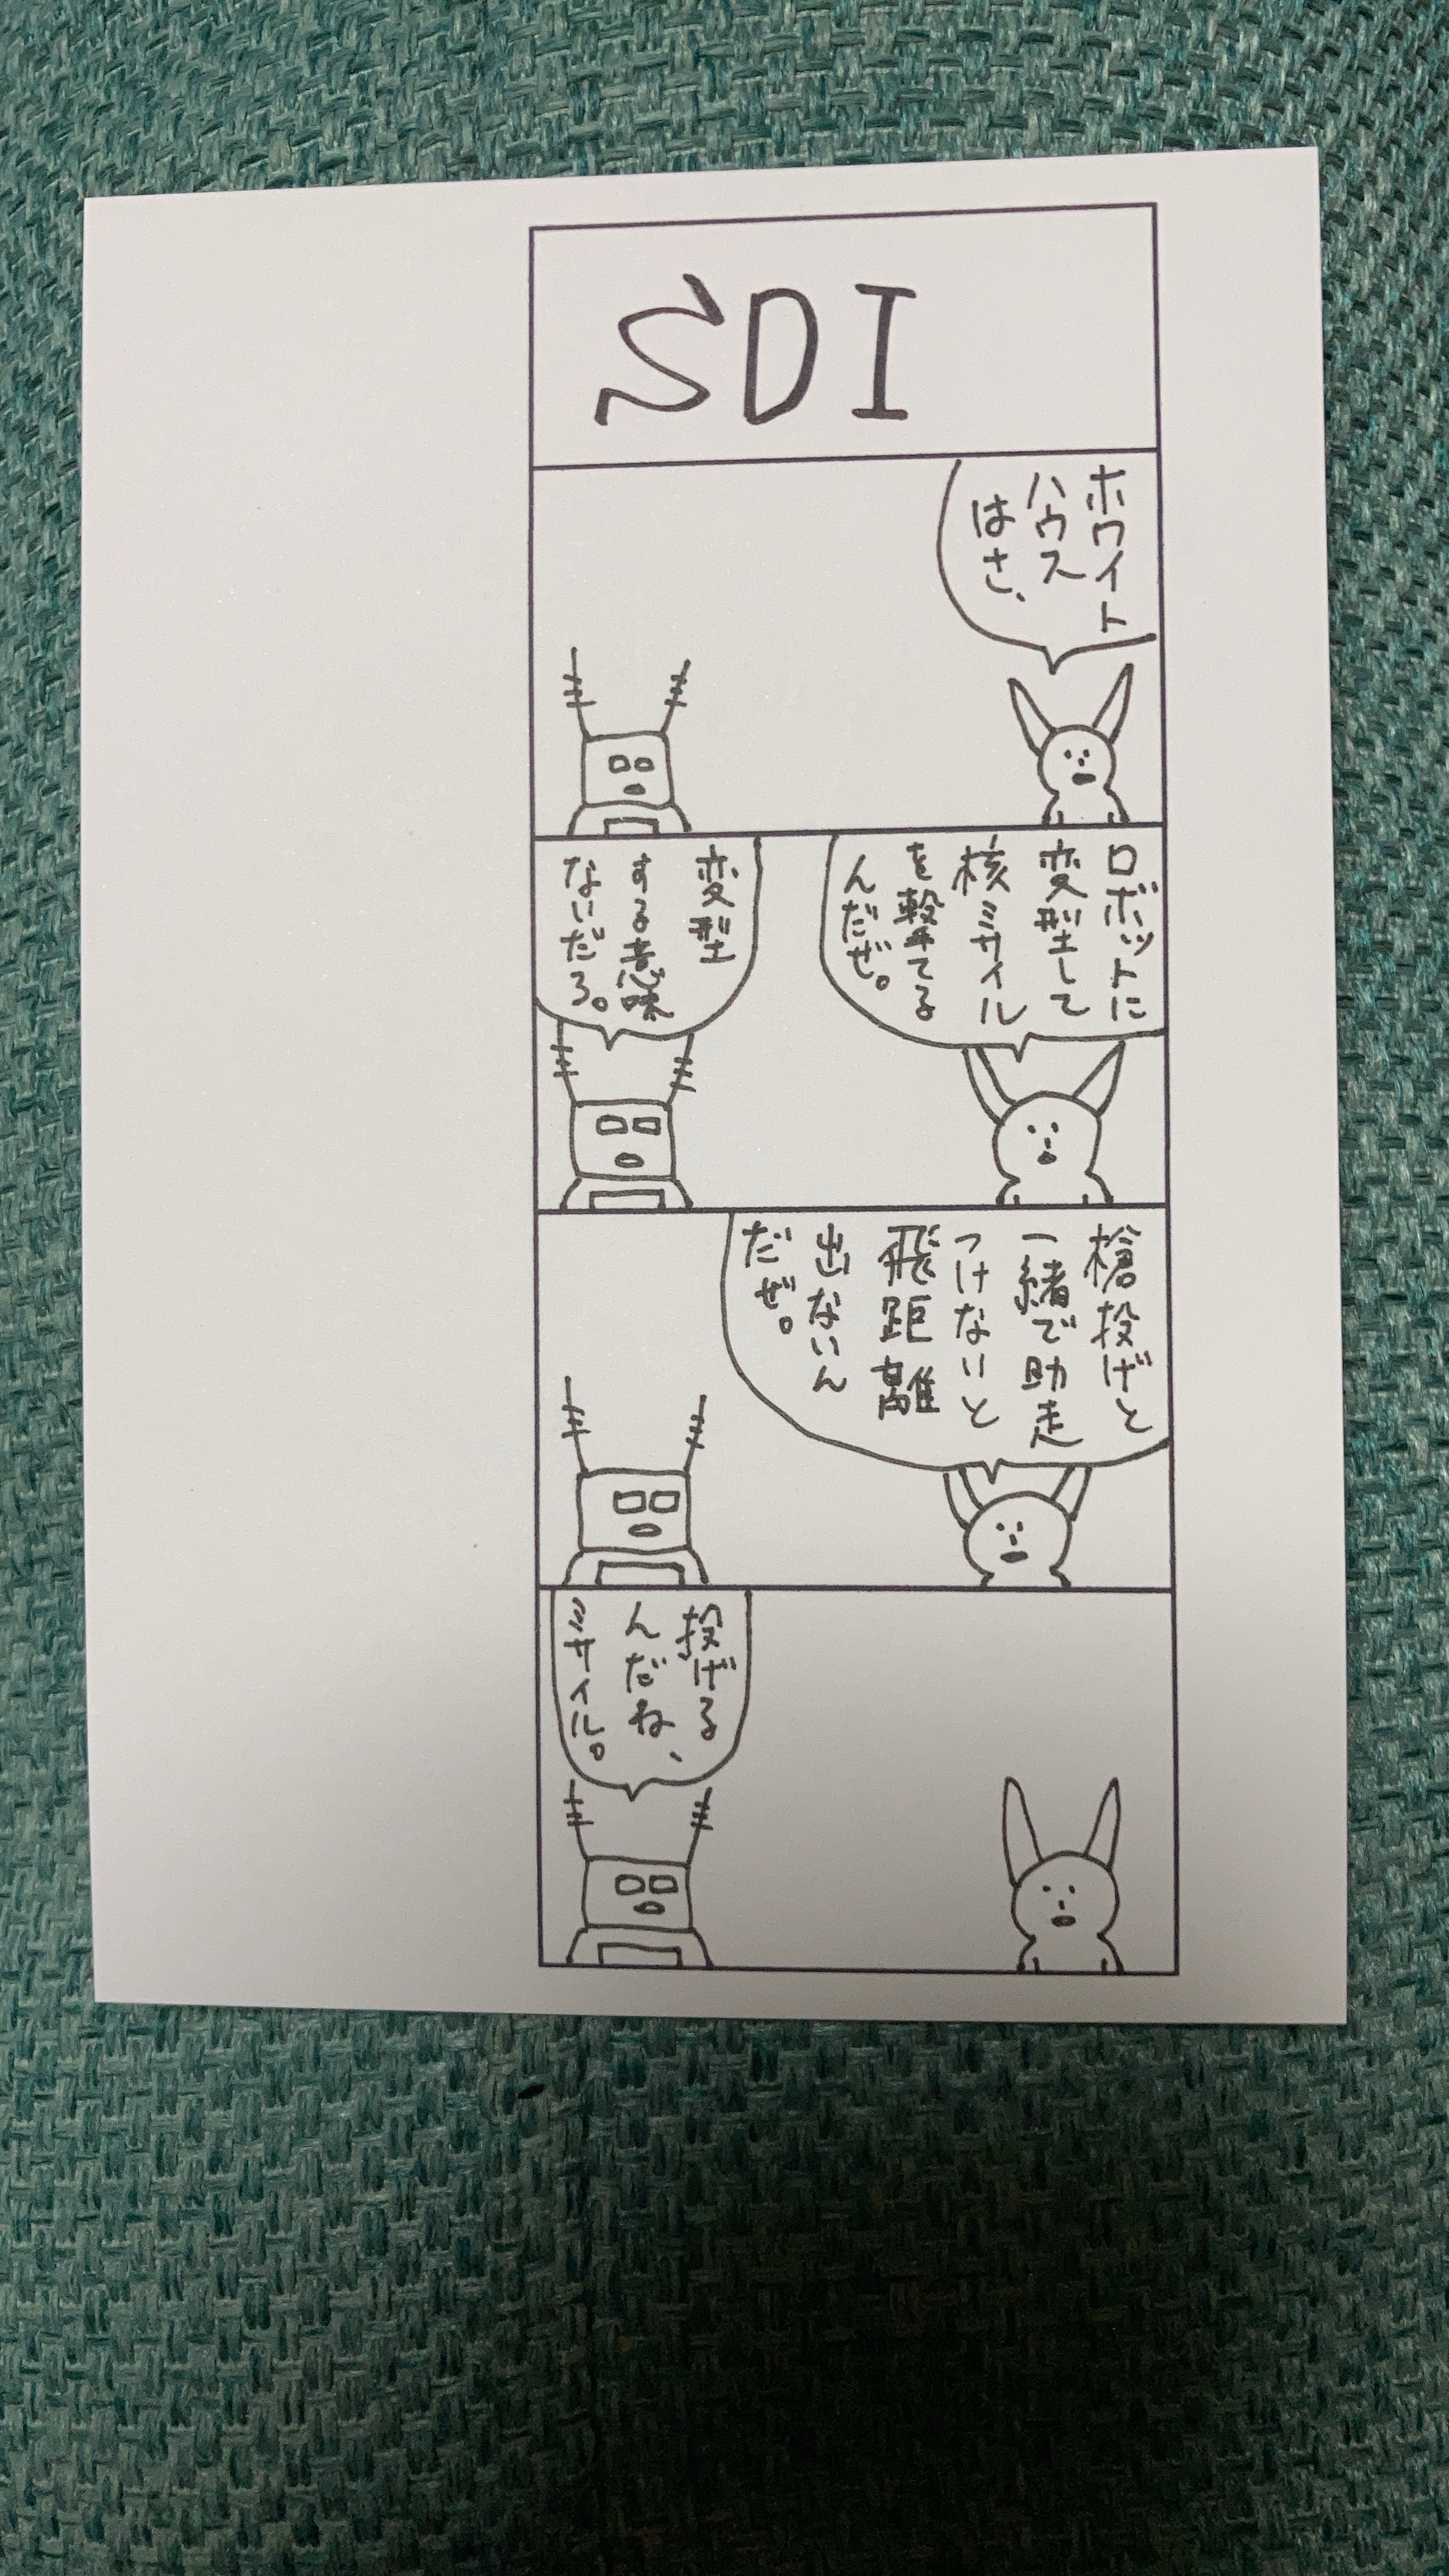 SDI
ホワイト
ハウス
はさ、
ロボットに
変型して
核ミサイル
を撃てる
んだぜ。
変型
する意味
ないだろ。
槍投げと
一緒で助走
つけないと
飛距離
出ないん
だぜ。
投げる
んだね、
ミサイル。